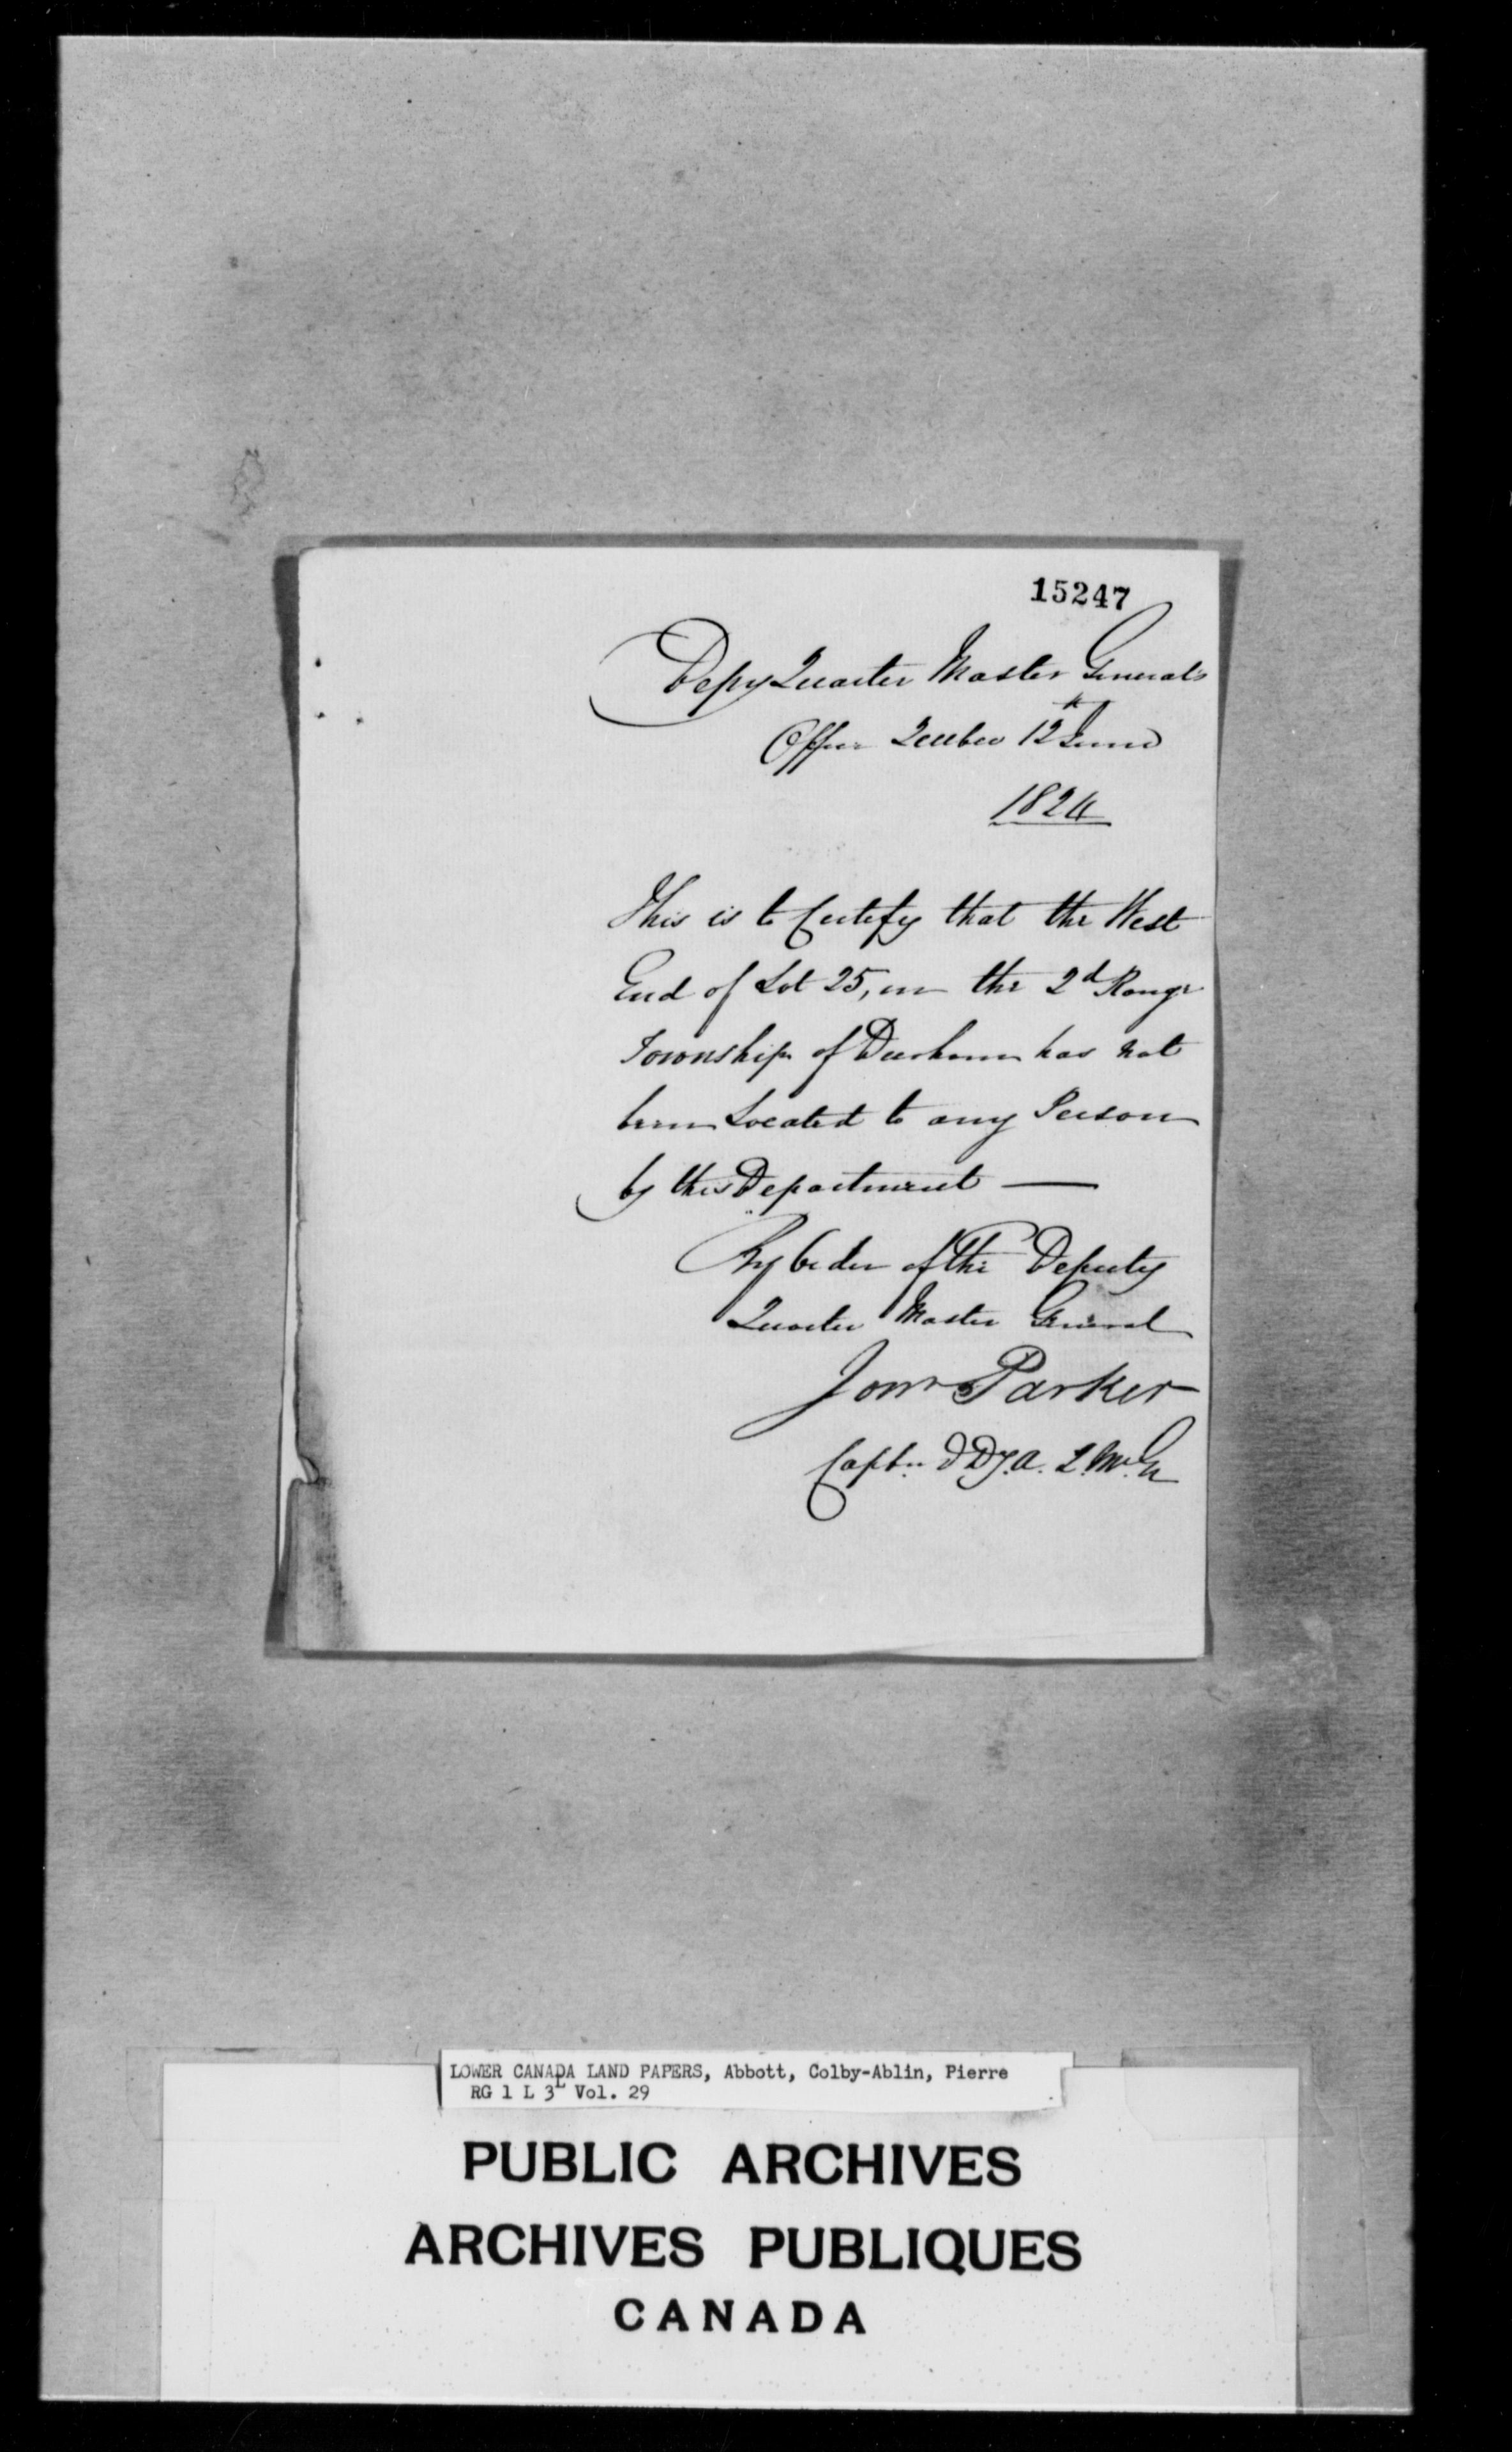 15247
Depy Quarter Master General's
Office Quebec 12th June
1824
This is to Certify that the West
End of Lot 25, in the 2d Range
Township of Durham has not
been Located to any Person
by this Department —
By Order of the Deputy
Quarter Master General
Parker
Captn D. A. Q. M. G
LOWER CANADA LAND PAPERS, Abbott, Colby-Ablin, Pierre
RG 1 L 3L Vol. 29
PUBLIC ARCHIVES
ARCHIVES PUBLIQUES
CANADA